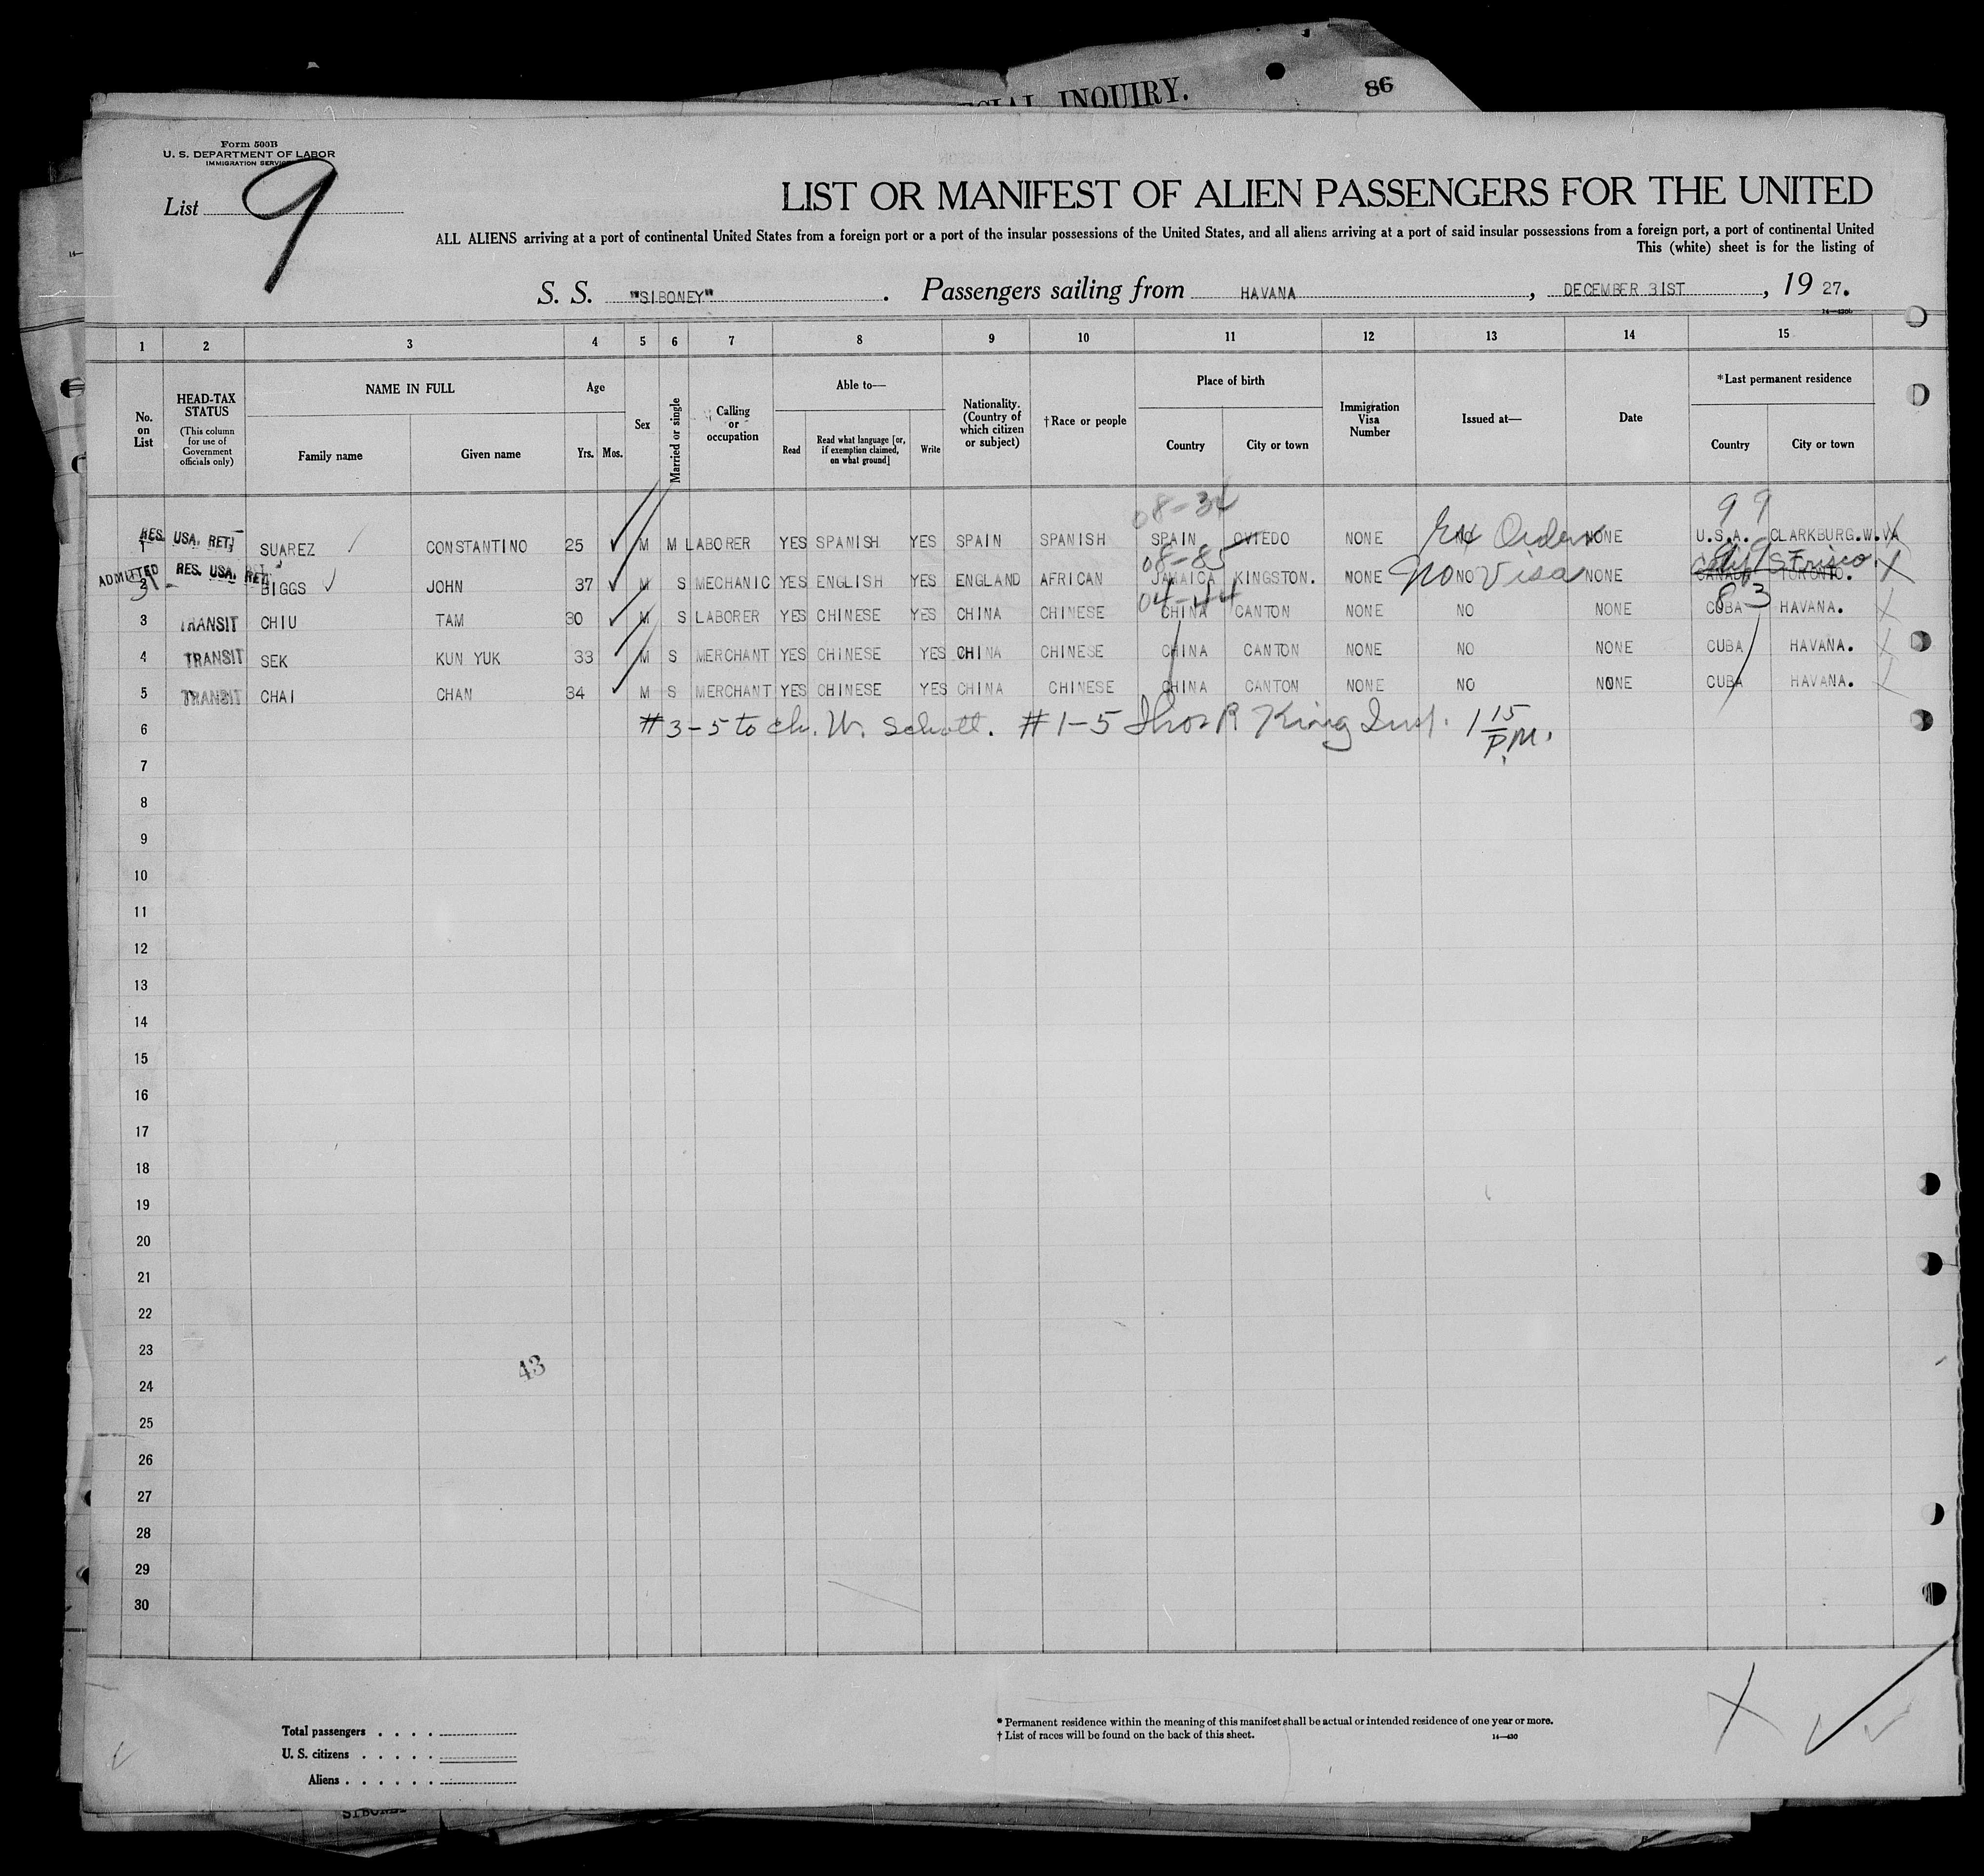 CIAL INQUIRY.
86
Form 500B
U. S. DEPARTMENT OF LABOR
IMMIGRATION SERVICE
List 9
LIST OR MANIFEST OF ALIEN PASSENGERS FOR THE UNITED
ALL ALIENS arriving at a port of continental United States from a foreign port or a port of the insular possessions of the United States, and all aliens arriving at a port of said insular possessions from a foreign port, a port of continental United
This (white) sheet is for the listing of
S. S. "SIBONEY". Passengers sailing from HAVANA, DECEMBER 31ST, 19 27.
1 2 3 4 5 6 7 8 9 10 11 12 13 14 15
No. on List
HEAD-TAX STATUS (This column for use of Government officials only)
NAME IN FULL Family name Given name
Age Yrs. Mos.
Sex
Married or single
Calling or occupation
Able to— Read Read what language [or, if exemption claimed, on what ground] Write
Nationality. (Country of which citizen or subject)
†Race or people
Place of birth Country City or town
Immigration Visa Number
Issued at—
Date
*Last permanent residence Country City or town
08-34 99
1 RES. USA. RET. SUAREZ CONSTANTINO 25 M M LABORER YES SPANISH YES SPAIN SPANISH SPAIN OVIEDO NONE NO NONE U.S.A. CLARKBURG.W.VA
08-85 99 Frisco
2 ADMITTED RES. USA. RET. BIGGS JOHN 37 M S MECHANIC YES ENGLISH YES ENGLAND AFRICAN JAMAICA KINGSTON. NONE NO No Visa NONE CANADA TORONTO.
04-44 83
3 TRANSIT CHIU TAM 30 M S LABORER YES CHINESE YES CHINA CHINESE CHINA CANTON NONE NO NONE CUBA HAVANA.
4 TRANSIT SEK KUN YUK 33 M S MERCHANT YES CHINESE YES CHINA CHINESE CHINA CANTON NONE NO NONE CUBA HAVANA.
5 TRANSIT CHAI CHAN 34 M S MERCHANT YES CHINESE YES CHINA CHINESE CHINA CANTON NONE NO NONE CUBA HAVANA.
6 #3-5 to ch. W. Schott. #1-5 Thos R King Insp. 1 15 P.M.
7
8
9
10
11
12
13
14
15
16
17
18
19
20
21
22
23
43
24
25
26
27
28
29
30
Total passengers . . . .
U. S. citizens . . . . .
Aliens . . . . . .
* Permanent residence within the meaning of this manifest shall be actual or intended residence of one year or more.
† List of races will be found on the back of this sheet. 14—430
SIBONEY